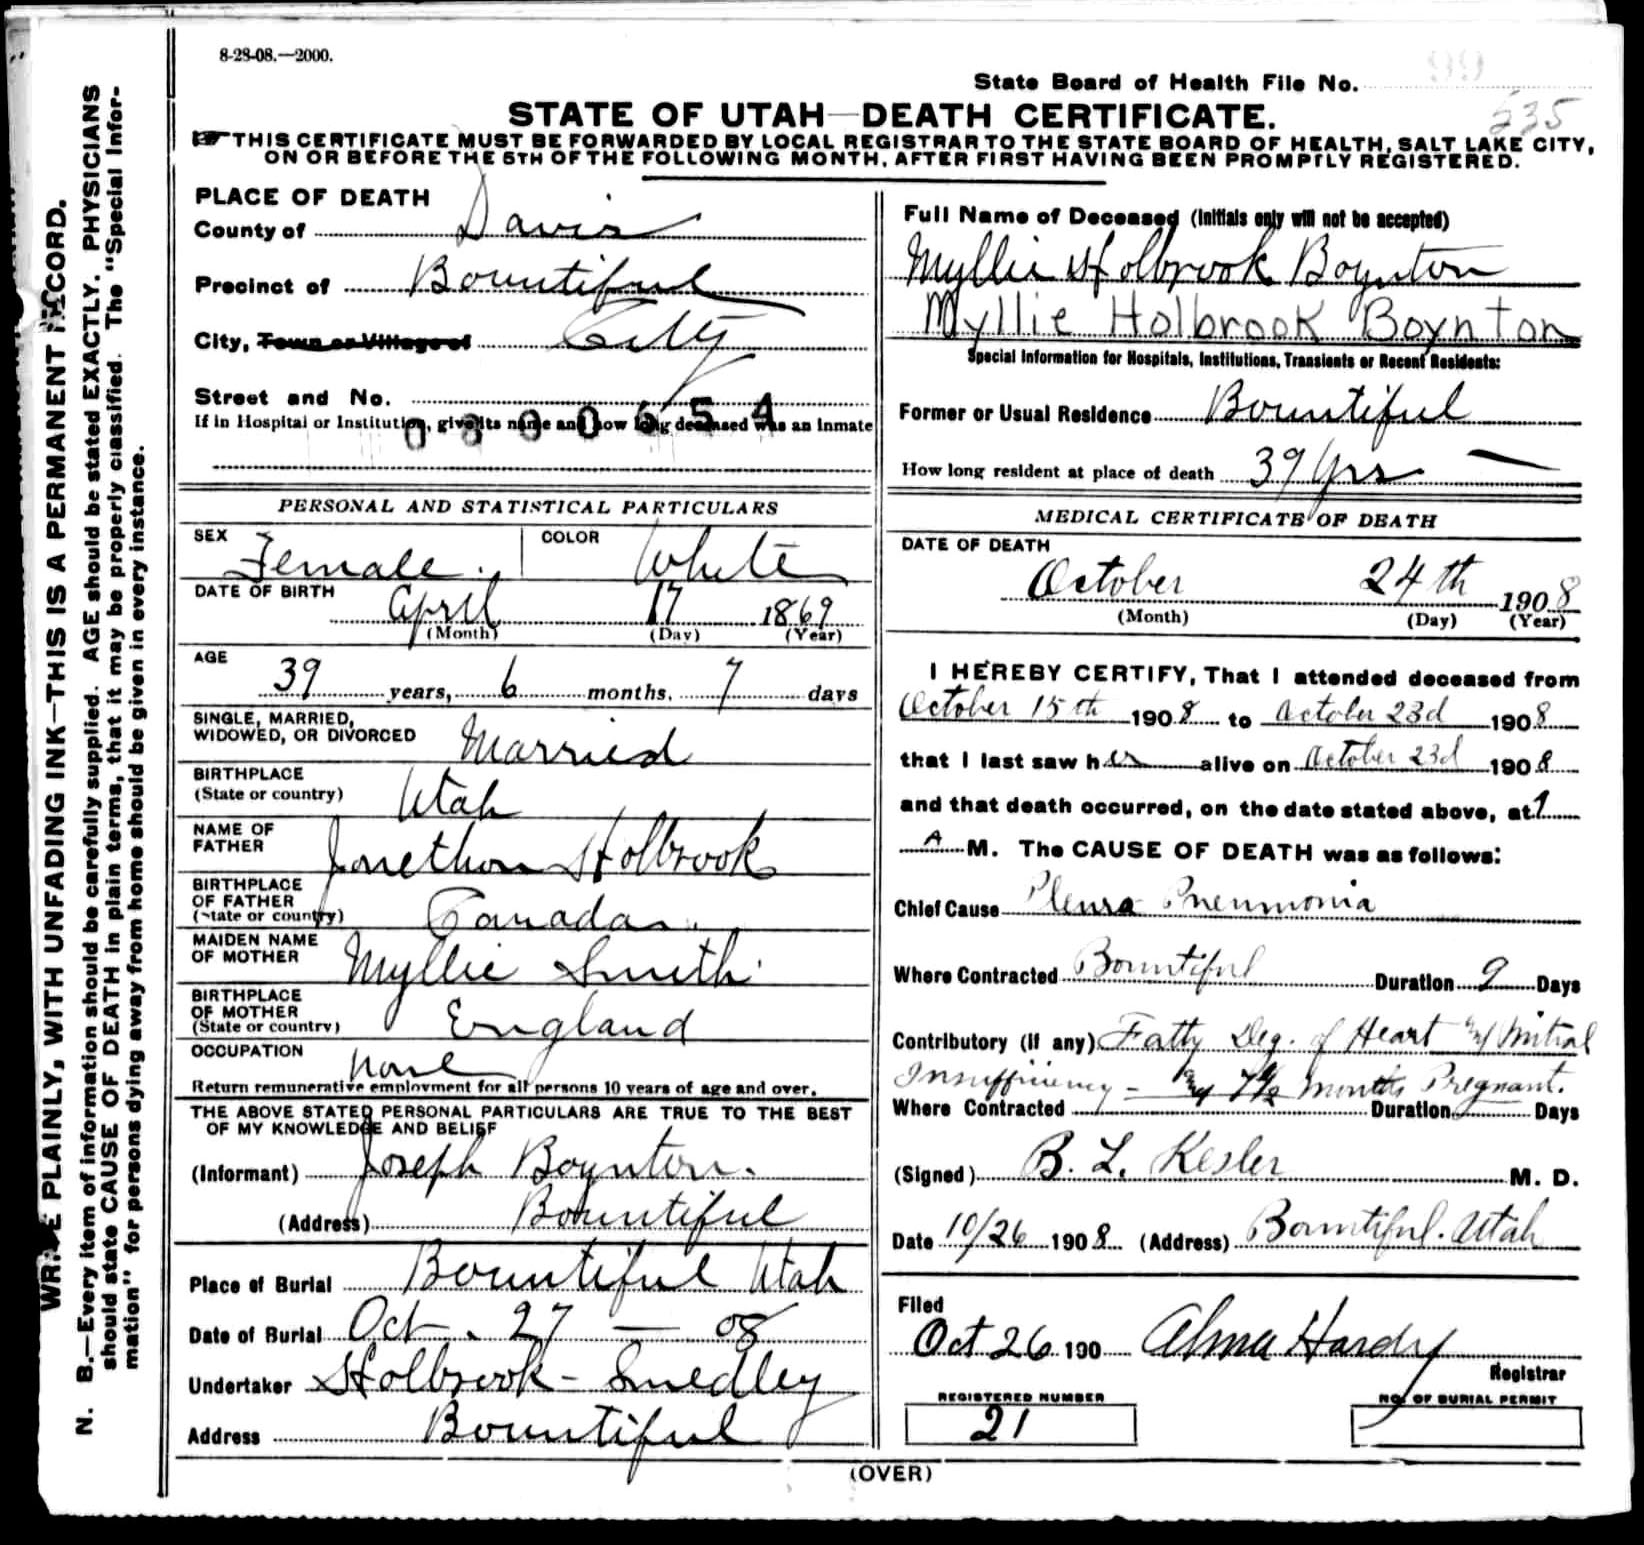 8-28-08.—2000.
State Board of Health File No. 99
535
STATE OF UTAH—DEATH CERTIFICATE.
☞ THIS CERTIFICATE MUST BE FORWARDED BY LOCAL REGISTRAR TO THE STATE BOARD OF HEALTH, SALT LAKE CITY,
ON OR BEFORE THE 5TH OF THE FOLLOWING MONTH, AFTER FIRST HAVING BEEN PROMPTLY REGISTERED.
WRITE PLAINLY, WITH UNFADING INK—THIS IS A PERMANENT RECORD.
N. B.—Every item of information should be carefully supplied. AGE should be stated EXACTLY. PHYSICIANS
should state CAUSE OF DEATH in plain terms, that it may be properly classified. The "Special Infor-
mation" for persons dying away from home should be given in every instance.
PLACE OF DEATH
County of Davis
Precinct of Bountiful
City, Town or Village of City
Street and No.
If in Hospital or Institution, give its name and how long deceased was an Inmate
0800654
PERSONAL AND STATISTICAL PARTICULARS
SEX Female. COLOR White
DATE OF BIRTH April 17 1869
(Month) (Day) (Year)
AGE 39 years, 6 months, 7 days
SINGLE, MARRIED,
WIDOWED, OR DIVORCED Married
BIRTHPLACE
(State or country) Utah
NAME OF
FATHER Jonethon Holbrook
BIRTHPLACE
OF FATHER
(State or country) Canada.
MAIDEN NAME
OF MOTHER Myllie Smith
BIRTHPLACE
OF MOTHER
(State or country) England
OCCUPATION none
Return remunerative employment for all persons 10 years of age and over.
THE ABOVE STATED PERSONAL PARTICULARS ARE TRUE TO THE BEST
OF MY KNOWLEDGE AND BELIEF
(Informant) Joseph Boynton.
(Address) Bountiful
Place of Burial Bountiful Utah
Date of Burial Oct. 27 — 08
Undertaker Holbrook - Smedley
Address Bountiful
Full Name of Deceased (Initials only will not be accepted)
Myllie Holbrook Boynton
Myllie Holbrook Boynton
Special Information for Hospitals, Institutions, Transients or Recent Residents:
Former or Usual Residence Bountiful
How long resident at place of death 39 yrs —
MEDICAL CERTIFICATE OF DEATH
DATE OF DEATH
October 24th 1908
(Month) (Day) (Year)
I HEREBY CERTIFY, That I attended deceased from
October 15th 1908 to October 23d 1908
that I last saw her alive on October 23d 1908
and that death occurred, on the date stated above, at 1
A M. The CAUSE OF DEATH was as follows:
Chief Cause Pleura Pneumonia
Where Contracted Bountiful Duration 9 Days
Contributory (if any) Fatty Deg. of Heart Mitral
Insufficiency - 7½ months Pregnant.
Where Contracted Duration Days
(Signed) B. L. Kesler M. D.
Date 10/26 1908 (Address) Bountiful. Utah
Filed
Oct 26 190 Alma Hardy
Registrar
REGISTERED NUMBER
21
NO. OF BURIAL PERMIT
(OVER)